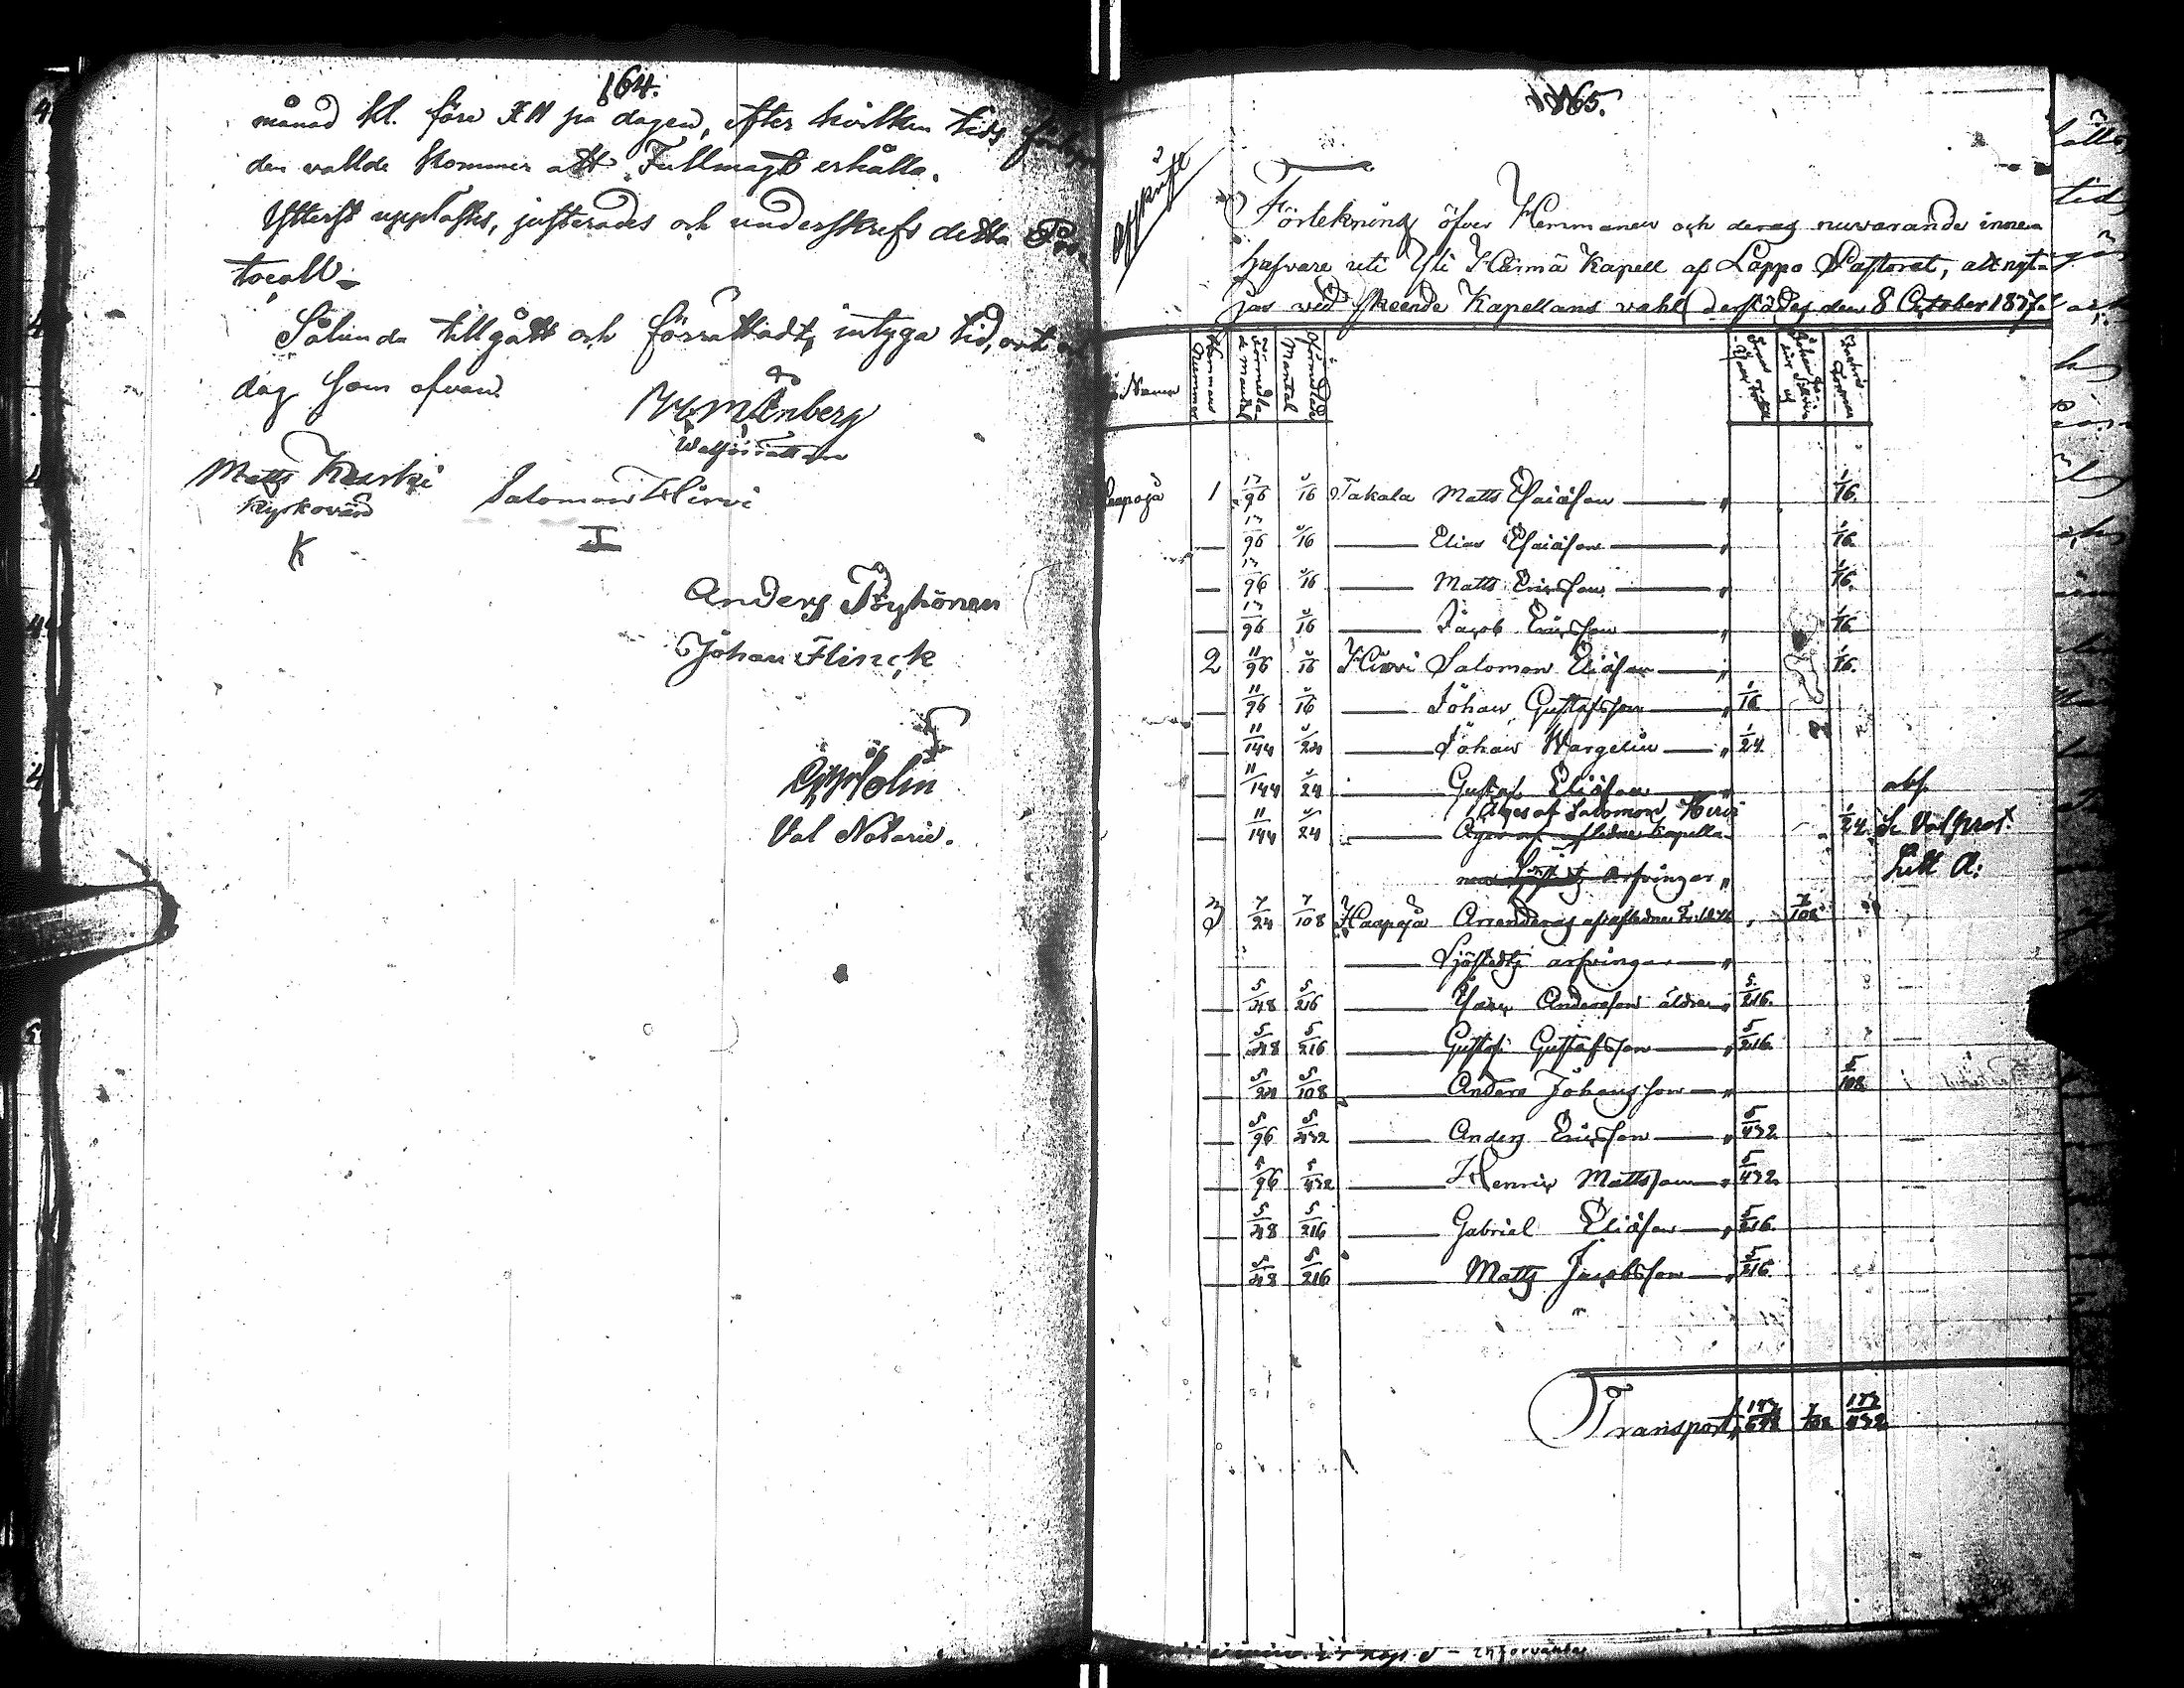 164.
månad kl. före XII på dagen, efter hvilken tids
den vallde kommer att Fullmagt erhålla.
Ytterst upplästes, justerades och underskrefs detta Pro-
tocoll.
Sålunda tillgått och förrättadt, intyga tid, ort och
dag som ofvan.
Enberg
Walförrättare
Matts Kaarki
Kyrkovärd
K
Salomon Hirvi
Anders Pöyhönen
Johan Flinck
Holm
Val Notarie.
165.
Afskrift
Förtekning öfver Hemmanen och deras nuvarande inne-
hafvare uti Yli Härmä Kapell af Lappo Pastorat, att nyt-
jas vid skeende Kapellans wahl derstädes den 8 October 1837.
Namn
Hemmans Nummer
Mantal
Haapoja 1 13/96 1/16 Takala Matts Esaiäson 1/16.
13/96 1/16 Elias Esaiäson 1/16.
13/96 1/16 Matts Ericsson 1/16.
13/96 1/16 Jacob Ericsson 1/16
2 11/96 1/16 Hirvi Salomon Eliäson 1/16.
11/96 1/16 Johan Gustafsson 1/16
11/144 1/24 Johan Wargelin 1/24
11/144 1/24 Gustaf Eliäson abs.
Äges af Salomon Hirvi
11/144 1/24 Äges af aflidne Kapella- 1/24 Se Valprot.
arfvingar Litt A:
3 7/24 7/108 Haapoja Arrenderas af aflidne 7/108
Sjöstedts arfvingar
5/48 5/216 Isaac Andersson äldre 5/216.
5/48 5/216 Gustaf Gustafsson 5/216
5/24 5/108 Anders Johansson 5/108
5/96 5/432 Anders Ericsson 5/432
5/96 5/432 Henric Mattsson 5/432
5/48 5/216 Gabriel Eliäson 5/216
5/48 5/216 Matts Jacobsson 5/216
Transport 7/108